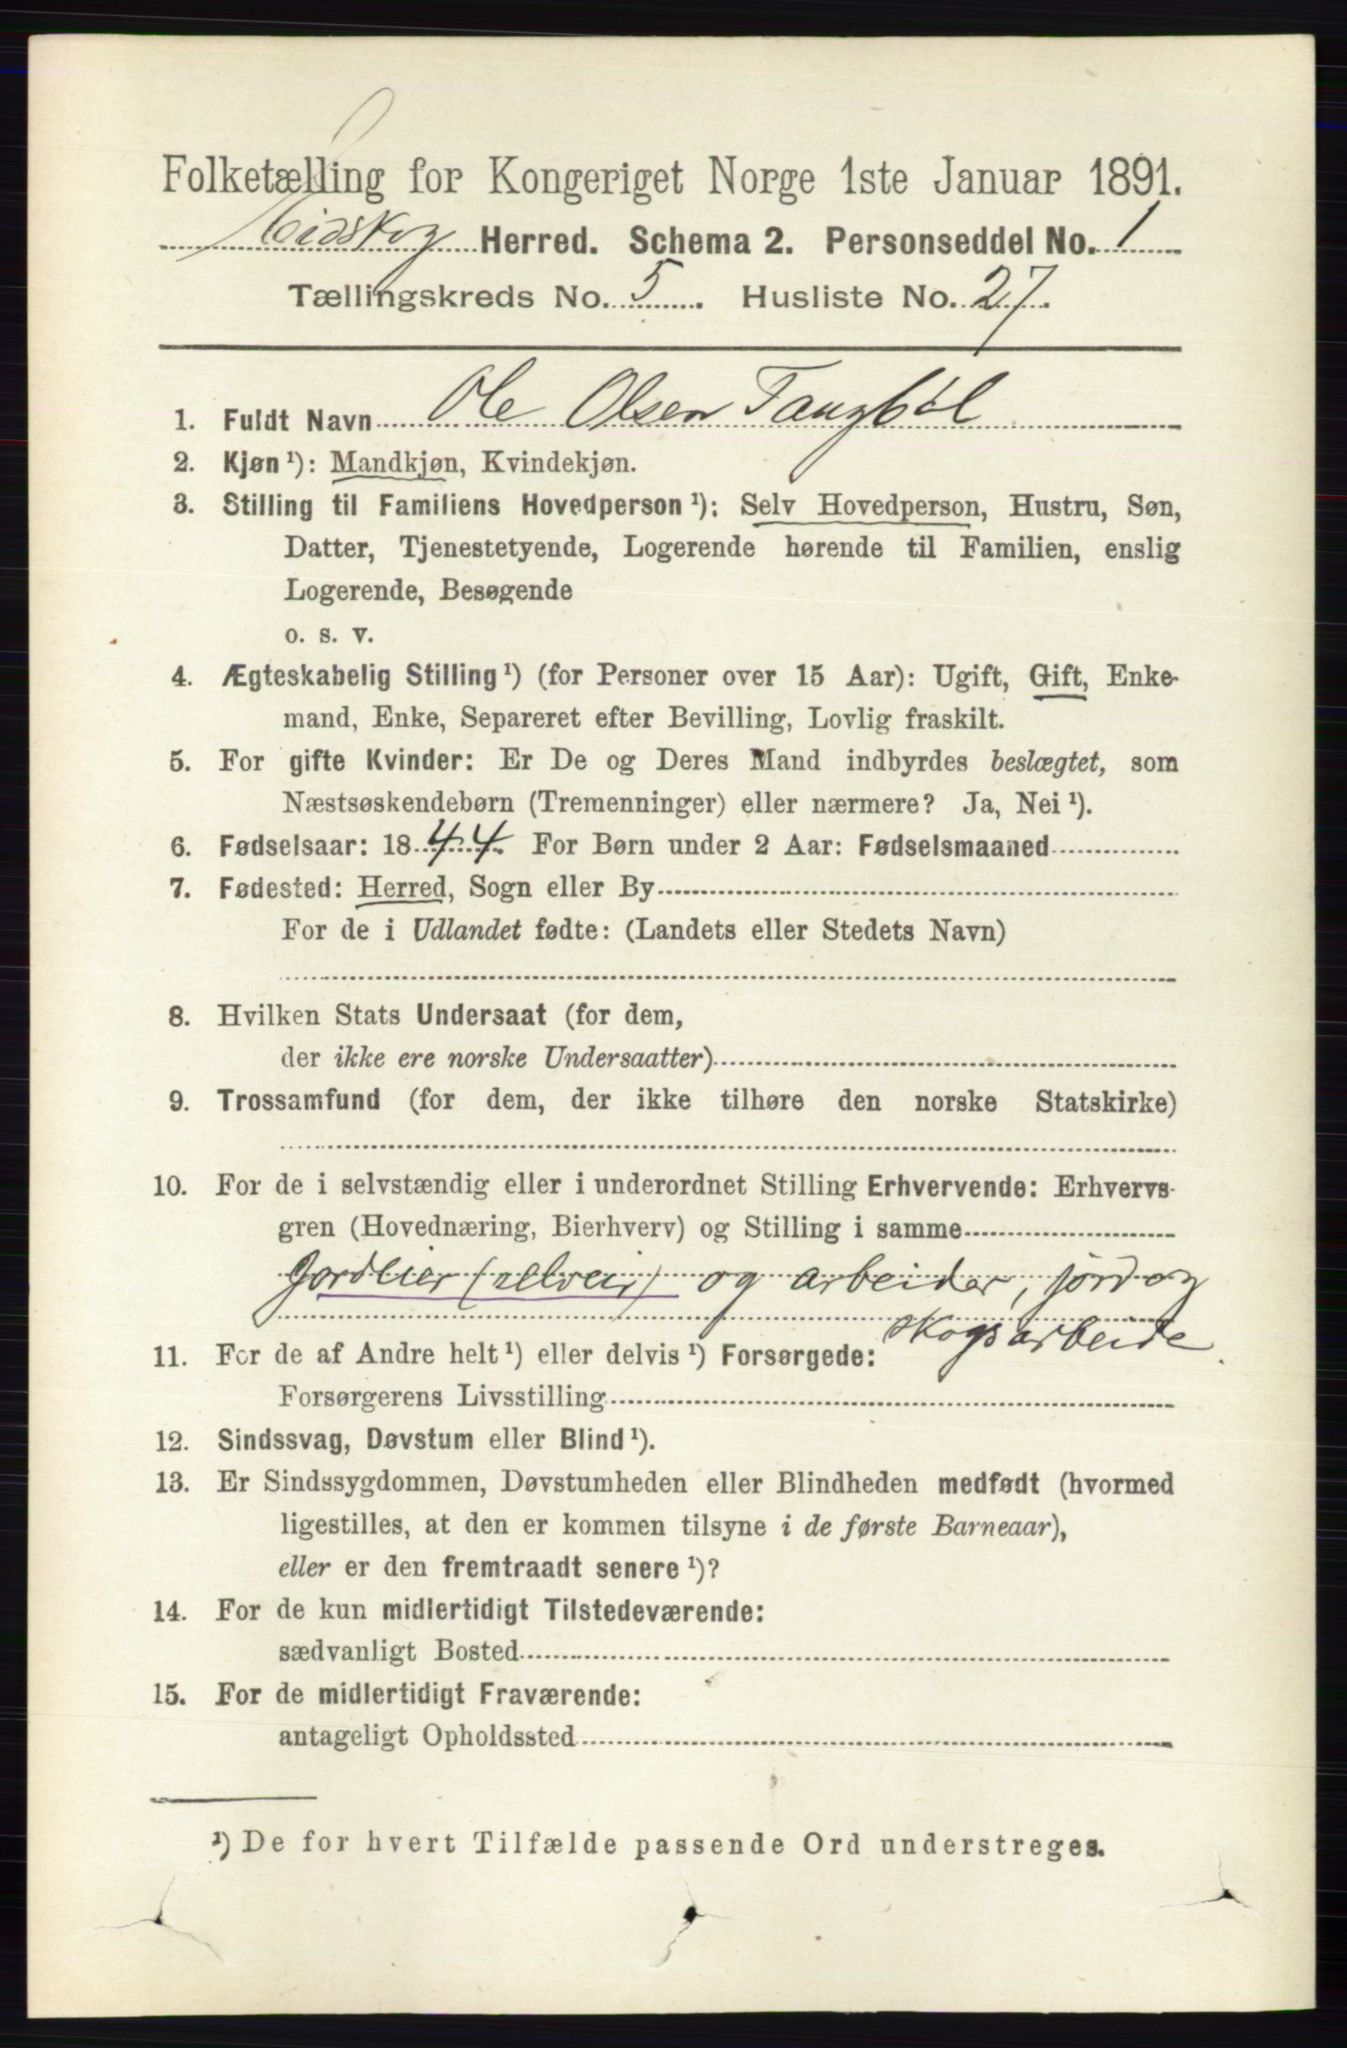 Folketælling for Kongeriget Norge 1ste Januar 1891.
Eidskog Herred. Schema 2. Personseddel No. 1
Tællingskreds No. 5. Husliste No. 27.
1. Fuldt Navn Ole Olsen Tangböl
2. Kjøn¹): Mandkjøn, Kvindekjøn.
3. Stilling til Familiens Hovedperson¹): Selv Hovedperson, Hustru, Søn,
Datter, Tjenestetyende, Logerende hørende til Familien, enslig
Logerende, Besøgende
o. s. v.
4. Ægteskabelig Stilling¹) (for Personer over 15 Aar): Ugift, Gift, Enke-
mand, Enke, Separeret efter Bevilling, Lovlig fraskilt.
5. For gifte Kvinder: Er De og Deres Mand indbyrdes beslægtet, som
Næstsøskendebørn (Tremenninger) eller nærmere? Ja, Nei¹).
6. Fødselsaar: 1844. For Børn under 2 Aar: Fødselsmaaned
7. Fødested: Herred, Sogn eller By
For de i Udlandet fødte: (Landets eller Stedets Navn)
8. Hvilken Stats Undersaat (for dem,
der ikke ere norske Undersaatter)
9. Trossamfund (for dem, der ikke tilhøre den norske Statskirke)
10. For de i selvstændig eller i underordnet Stilling Erhvervende: Erhvervs-
gren (Hovednæring, Bierhverv) og Stilling i samme
(selveier) og arbeider, jord og
skogsarbeide.
11. For de af Andre helt¹) eller delvis¹) Forsørgede:
Forsørgerens Livsstilling
12. Sindssvag, Døvstum eller Blind¹).
13. Er Sindssygdommen, Døvstumheden eller Blindheden medfødt (hvormed
ligestilles, at den er kommen tilsyne i de første Barneaar),
eller er den fremtraadt senere¹)?
14. For de kun midlertidigt Tilstedeværende:
sædvanligt Bosted
15. For de midlertidigt Fraværende:
antageligt Opholdssted
¹) De for hvert Tilfælde passende Ord understreges.